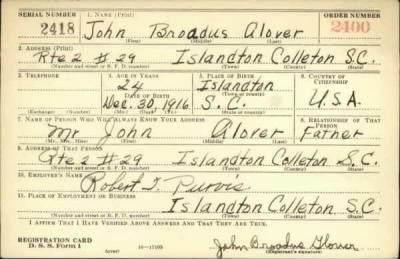 SERIAL NUMBER 1. NAME (Print) ORDER NUMBER
2418 John Broadus Glover 2400
(First) (Middle) (Last)
2. ADDRESS (Print)
Rte 2 # 29 Islandton Colleton S.C.
(Number and street or R. F. D. number) (Town) (County) (State)
3. TELEPHONE 4. AGE IN YEARS 5. PLACE OF BIRTH 6. COUNTRY OF CITIZENSHIP
24 Islandton
DATE OF BIRTH (Town or county)
Dec. 30, 1916 S.C. U.S.A.
(Exchange) (Number) (Mo.) (Day) (Yr.) (State or country)
7. NAME OF PERSON WHO WILL ALWAYS KNOW YOUR ADDRESS 8. RELATIONSHIP OF THAT PERSON
Mr John Glover Father
(Mr., Mrs., Miss) (First) (Middle) (Last)
9. ADDRESS OF THAT PERSON
Rte 2 # 29 Islandton Colleton S.C.
(Number and street or R. F. D. number) (Town) (County) (State)
10. EMPLOYER'S NAME
Robert T. Purvis
11. PLACE OF EMPLOYMENT OR BUSINESS
Islandton Colleton S.C.
(Number and street or R. F. D. number) (Town) (County) (State)
I AFFIRM THAT I HAVE VERIFIED ABOVE ANSWERS AND THAT THEY ARE TRUE.
REGISTRATION CARD
D. S. S. Form 1 (over) 16-17105 John Broadus Glover
(Registrant's signature)